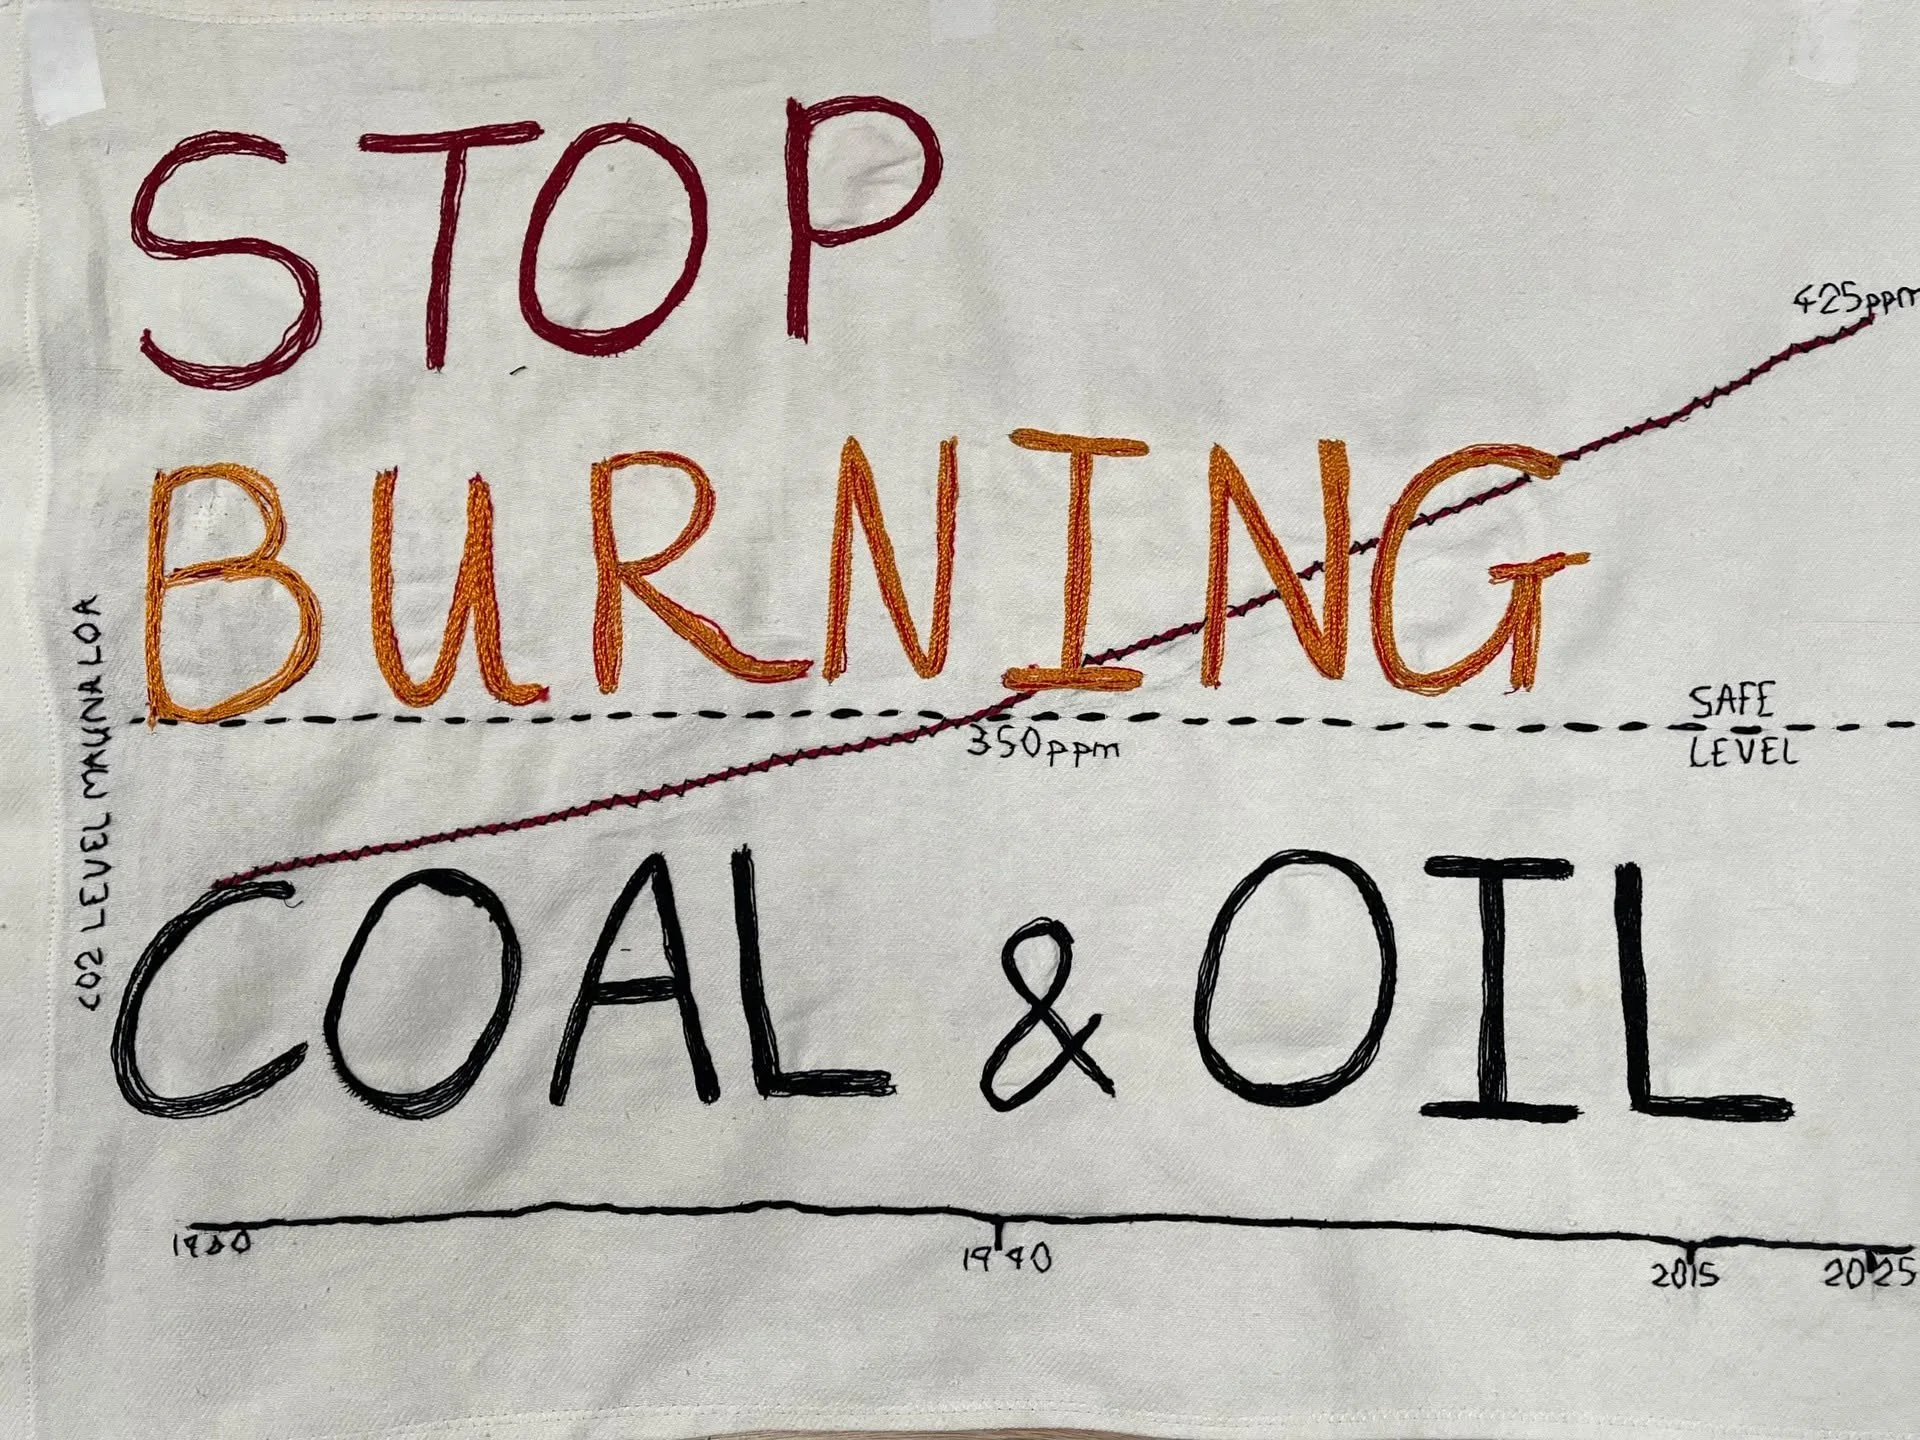 STOP
425ppm
BURNING
SAFE
350ppm
LEVEL
CO2 LEVEL MAUNA LOA
COAL & OIL
1960 1990 2015 2025